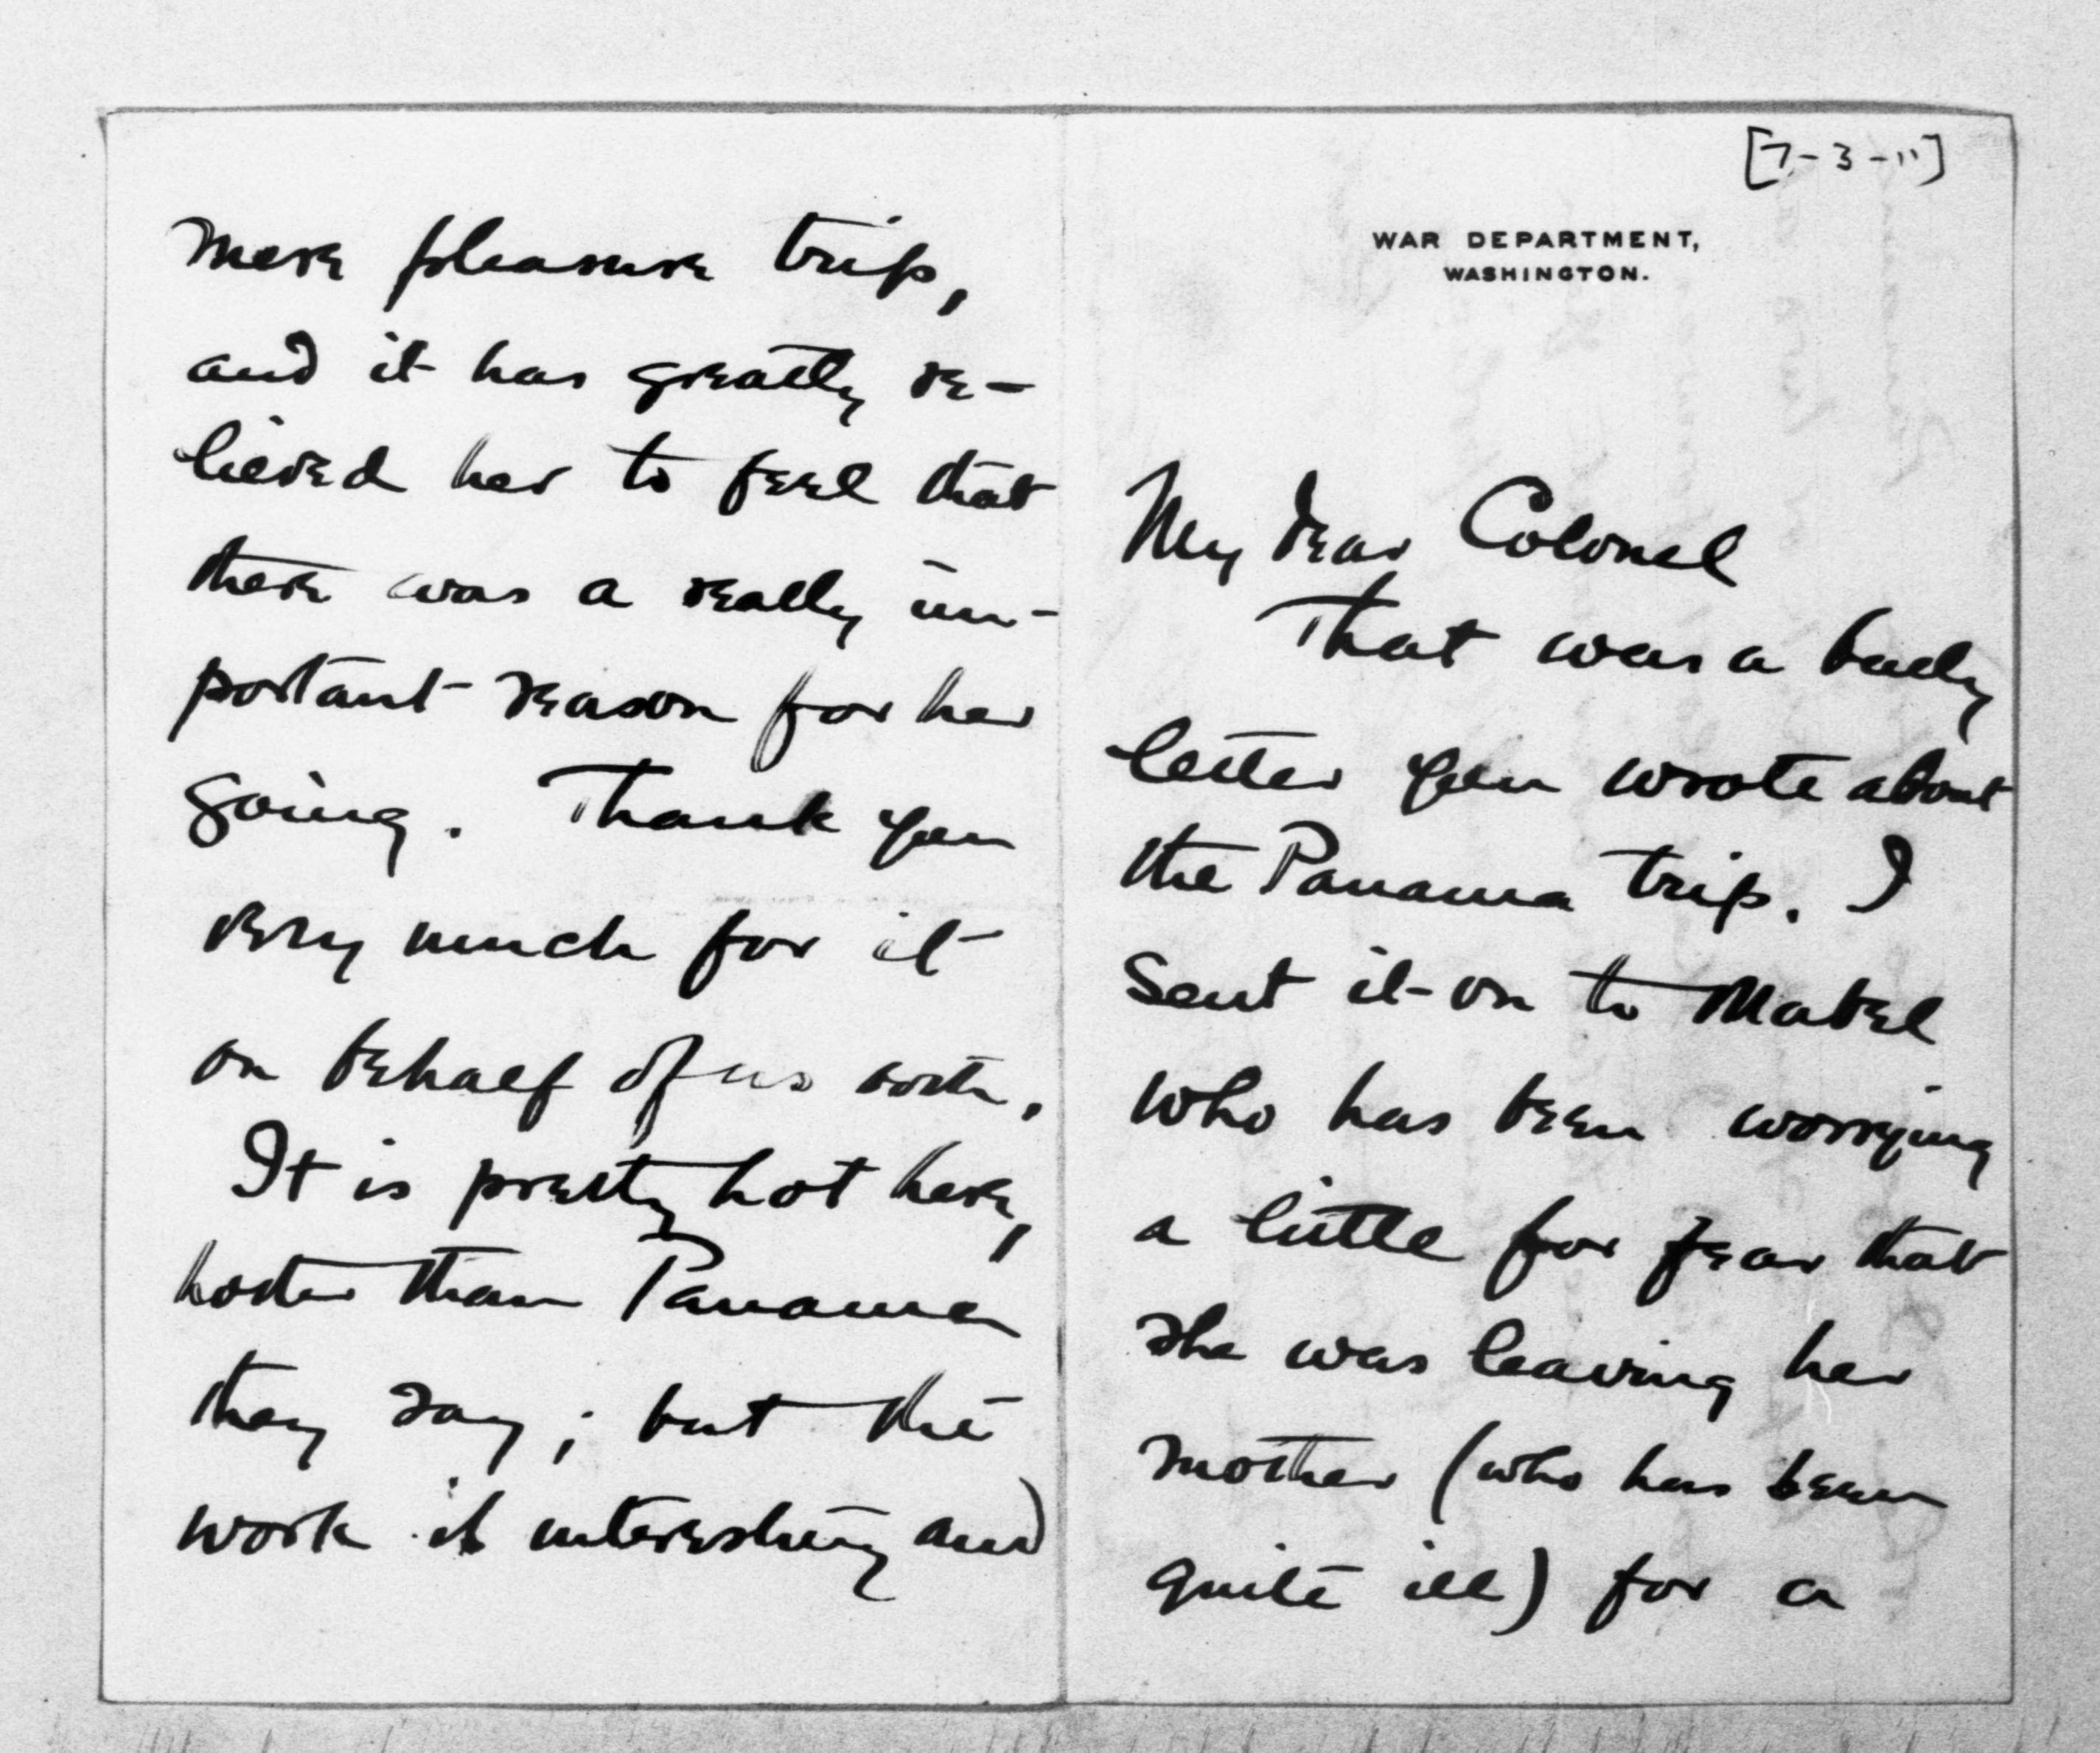 [7-3-11]
WAR DEPARTMENT,
WASHINGTON.
My dear Colonel
That was a bully
letter you wrote about
the Panama trip. I
sent it on to Mabel
who has been worrying
a little for fear that
she was leaving her
mother (who has been
quite ill) for a
mere pleasure trip,
and it has greatly re-
lieved her to feel that
there was a really im-
portant reason for her
going. Thank you
very much for it
on behalf of us both.
It is pretty hot here,
hotter than Panama
they say; but the
work is interesting and